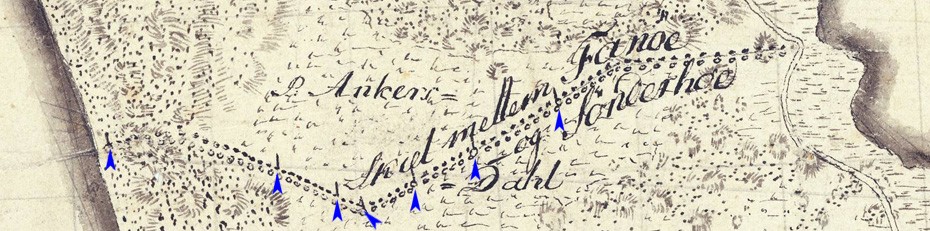 P. Ankers=
Skiel mellem Fanöe
og Sönderhoe
= Dahl